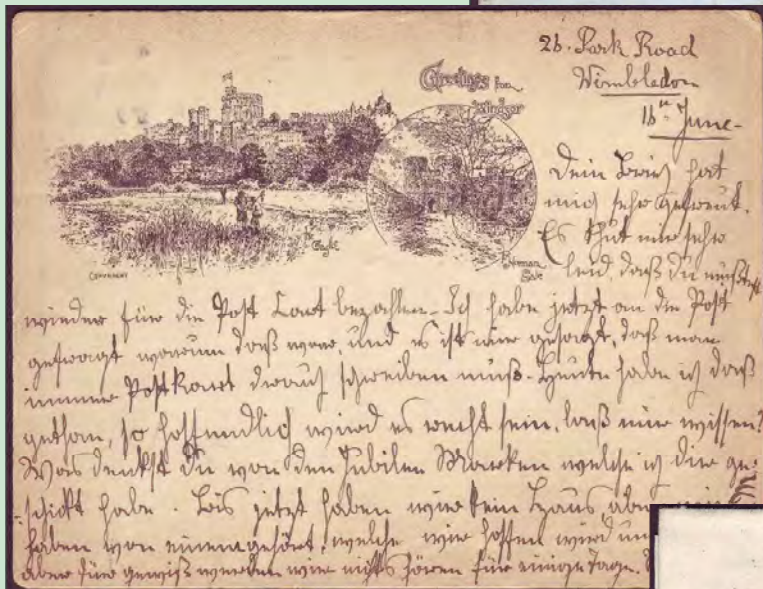 26. Park Road
Wimbledon
16th June.
Greetings from
Windsor
Dein Brief hat
mich sehr gefreut.
Es thut mir sehr
leid, daß du mußtest
Castle
Norman
Gate
COPYRIGHT
wieder für die Post Cart bezahlen. Ich habe jetzt an die Post
gefragt warum daß war, und es ist mir gesagt, daß man
immer Postkart darauf schreiben muß. Heute habe ich daß
gethan, so hoffendlich wird es recht sein, laß mir wissen?
Was denkst Du von den Jubilee Marken welche ich dir ge=
=schickt habe. Bis jetzt haben wir kein Haus, aber
haben von einem gehört, welche wir hoffen wird
aber für gewiß werden wir nichts hören für einige Tage.